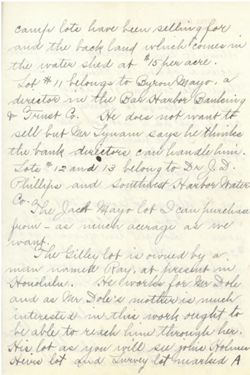 camp lots have been selling for
and the back land which comes in
the water shed at $15 per acre.
Lot #11 belongs to Byron Mayo, a
director in the Bar Harbor Banking
& Trust Co. He does not want to
sell but Mr Lynam says he thinks
the bank directors can handle him.
Lots #12 and 13 belong to Dr J. D.
Phillips and Southwest Harbor Water
Co.
The Jack Mayo lot I can purchase
from - as much acerage as we
want.
The Gilley lot is owned by a
man named Ray, at present in
Honolulu. He works for Mr Dole
and as Mr Dole's mother is much
interested in this work ought to
be able to reach him through her.
His lot as you will see John Holmes
Heirs lot and Survey lot marked A